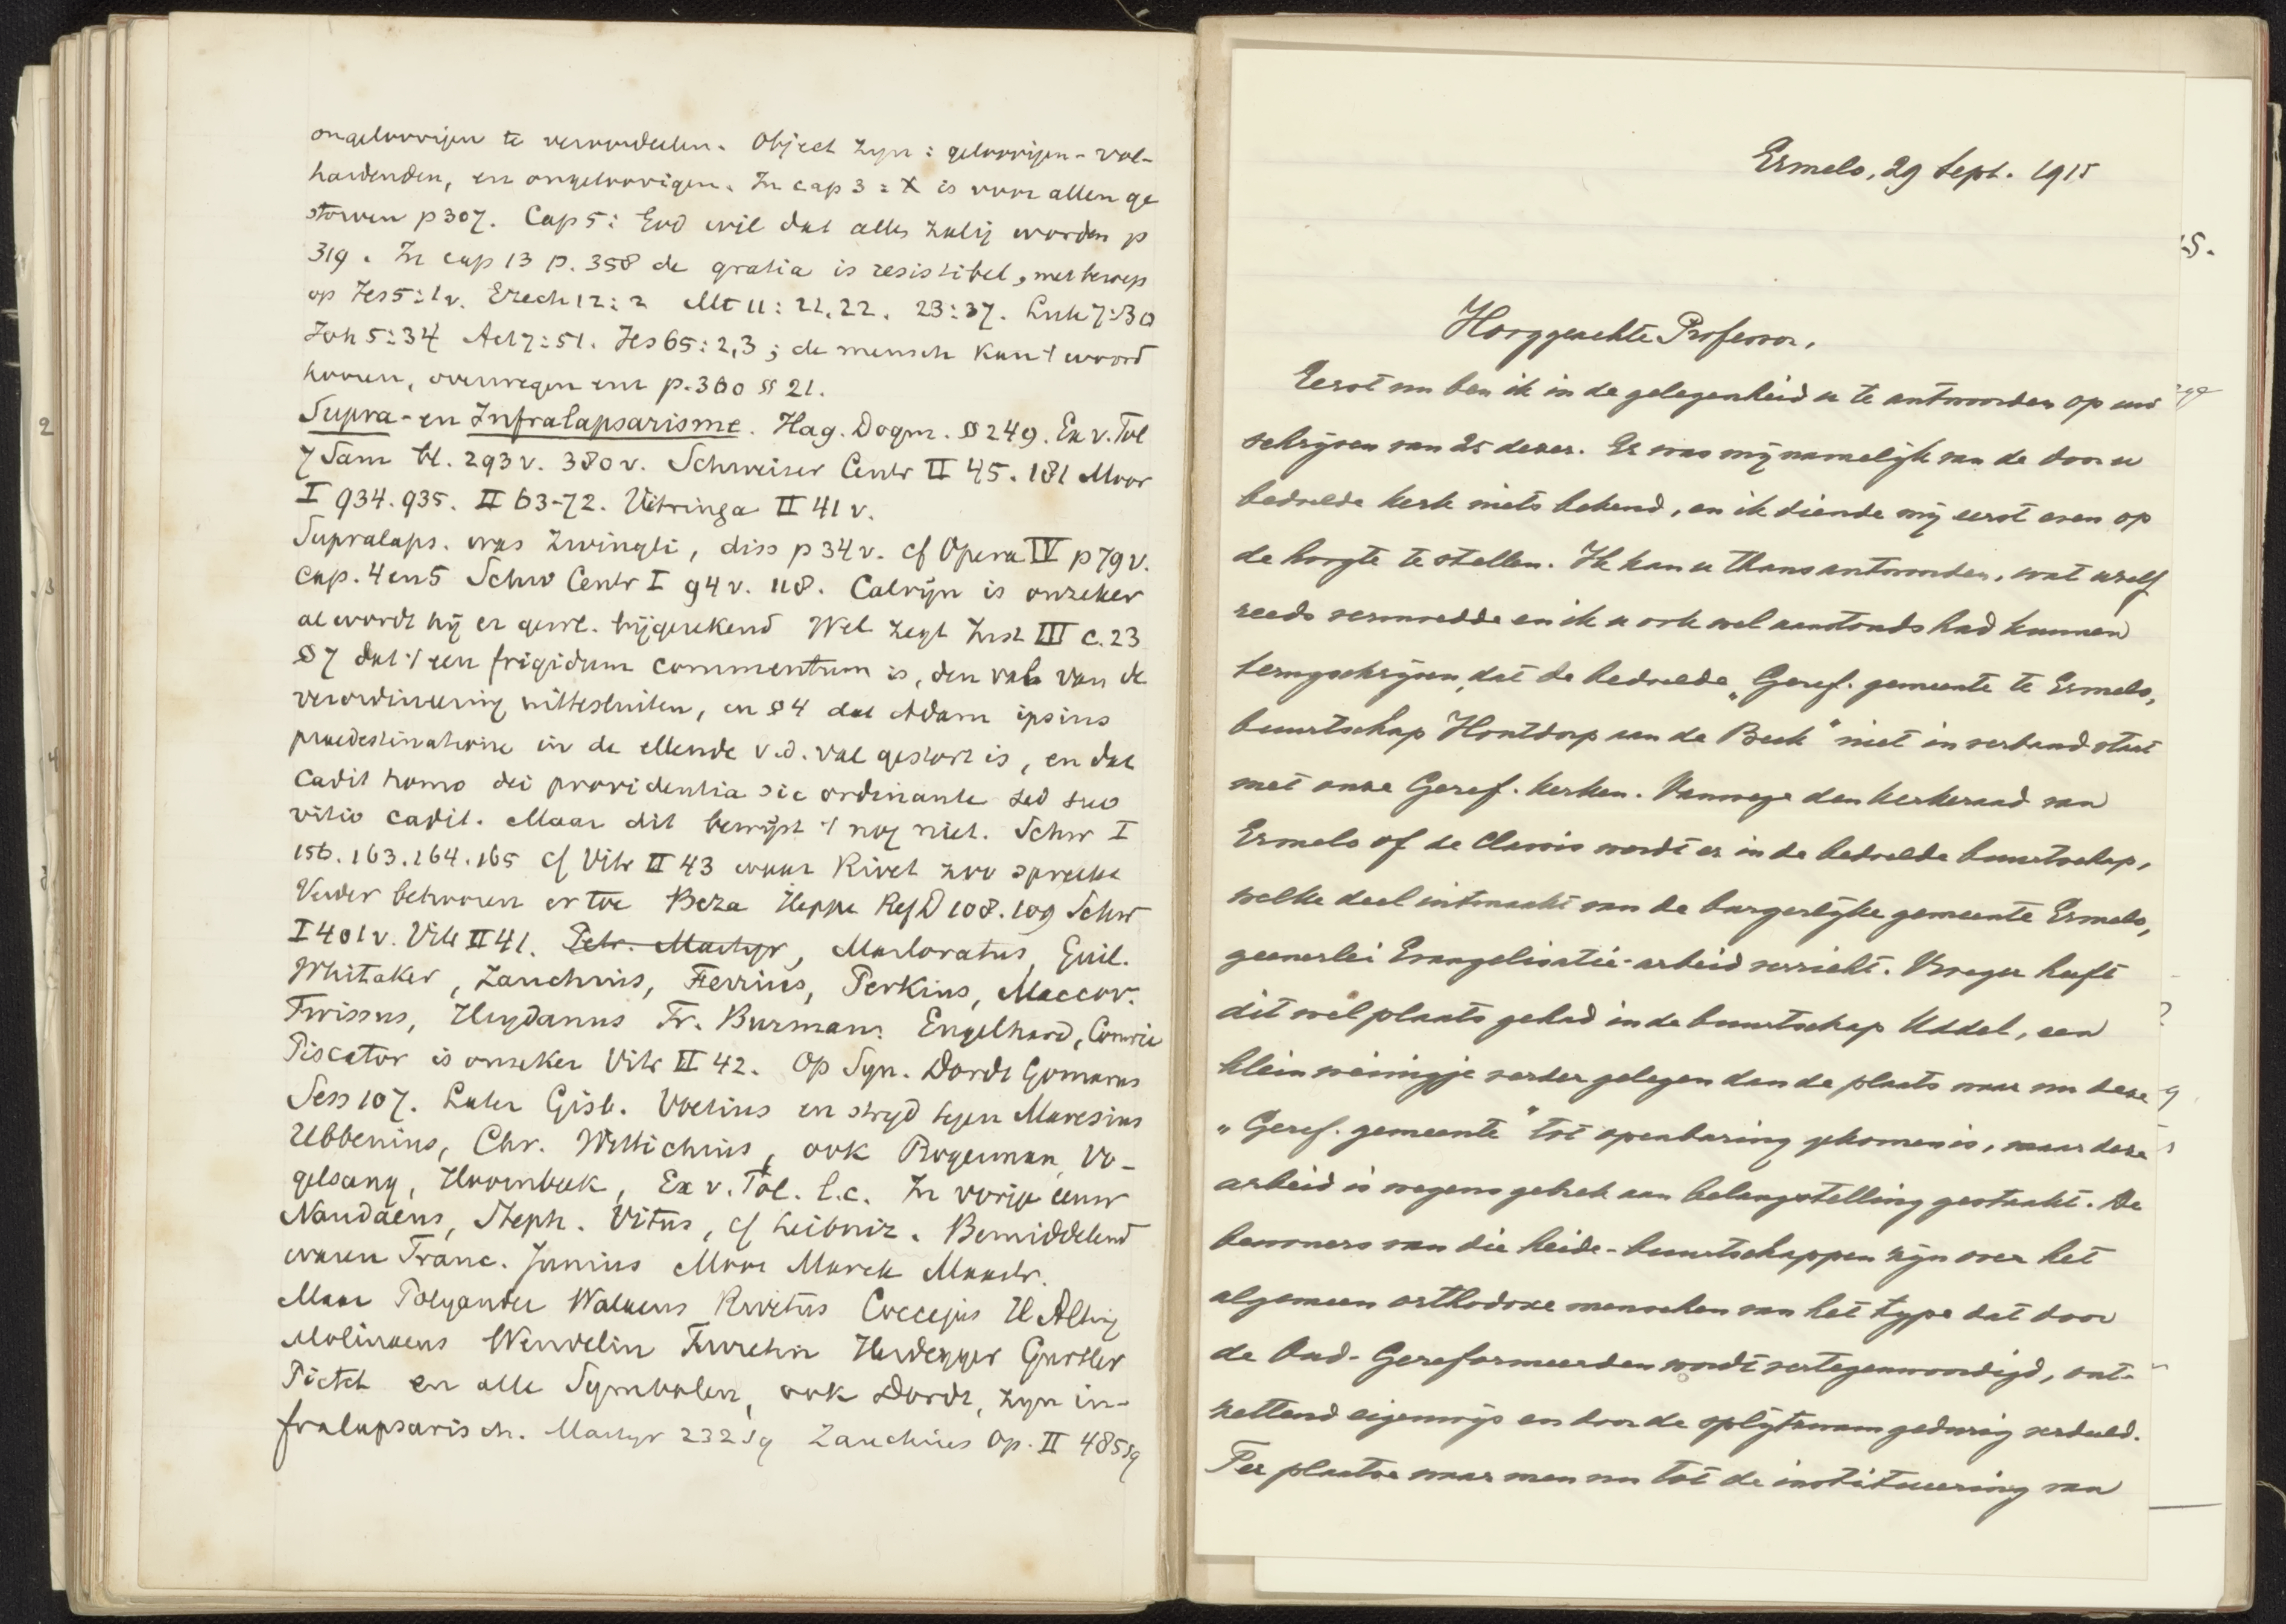 ongeloovigen te veroordeelen. Object zyn: geloovigen - vol-
hardenden, en ongeloovigen. In cap 3: X is voor allen ge
storven p 307. Cap 5: God wil dat alles zalig worden p
319. In cap 13 p. 358 de gratia is resistibel, met beroep
op Jes 5:1v. Ezech 12:2 Mt 11:21.22. 23:37. Luk 7:30
Joh 5:34 Act 7:51. Jes 65:2,3; de mensch kan 't woord
hooren, overwegen enz p. 360 § 21.
Supra- en Infralapsarisme. Hag. Dogm. § 249. Ex v. Tol
7 Sam bl. 293v. 380v. Schweizer Centr II 45. 181 Moor
I 934.935. II 63-72. Vitringa II 41 v.
Supralaps. was Zwingli, diss p 34v. cf Opera IV p 79v.
cap. 4 en 5 Schw Centr I 94v. 118. Calvijn is onzeker
al wordt hij er gew. bijgerekend Wel zegt Inst III c. 23
§ 7 dat 't een frigidum commentum is, den val van de
verordineering uittesluiten, en § 4 dat Adam ipsius
praedestinatione in de ellende v.d. val gestort is, en dat
cadit homo dei providentia sic ordinante sed suo
vitio cadit. Maar dit bewijst 't nog niet. Schw I
156.163.164.165 cf Vitr II 43 waar Rivet zoo spreekt
Verder behooren er toe Beza Heppe Ref D 108.109 Schw
I 401v. Vitr II 41. Petr. Martyr, Marloratus, Guil.
Whitaker, Zanchius, Ferrius, Perkins, Maccov.
Twissus, Heydanus Fr. Burman. Engelhard, Comrie
Piscator is onzeker Vitr II 42. Op Syn. Dordt Gomarus
Sess 107. Later Gisb. Voetius en stryd tegen Maresius
Ubbenius, Chr. Wittichius, ook Rogerman, Vo-
gelsang, Hoornbeek, Ex v. Tol. l.c. In vorige eeuw
Naudaeus, Steph. Vitus, cf Leibniz. Bemiddelend
waren Franc. Junius Moor Marck Mastr.
Maar Polyander Walaeus Rivetus Coccejus H Alting
Molinaeus Wendelin Turretin Heidegger Gurtler
Pictet en alle Symbolen, ook Dordt, zyn in-
fralapsarisch. Martyr 232 sq Zanchius Op. II 485 sq
Ermelo, 29 Sept. 1915
Hooggeachte Professor,
Eerst nu ben ik in de gelegenheid u te antwoorden op uw
schrijven van 25 dezer. Er was mij namelijk van de door u
bedoelde kerk niets bekend, en ik diende mij eerst even op
de hoogte te stellen. Ik kan u thans antwoorden, wat uzelf
reeds vermoedde en ik u ook wel aanstonds had kunnen
terugschrijven, dat de bedoelde „Geref. gemeente te Ermelo,
buurtschap Houtdorp aan de Beek" niet in verband staat
met onze Geref. kerken. Vanwege den kerkeraad van
Ermelo of de Classis wordt er in de bedoelde buurtschap,
welke deel uitmaakt van de burgerlijke gemeente Ermelo,
geenerlei Evangelisatie-arbeid verricht. Vroeger heeft
dit wel plaats gehad in de buurtschap Uddel, een
klein weinigje verder gelegen dan de plaats waar nu deze
„Geref. gemeente" tot openbaring gekomen is, maar deze
arbeid is wegens gebrek aan belangstelling gestaakt. De
bewoners van die heide-buurtschappen zijn over het
algemeen orthodoxe menschen van het type dat door
de Oud-Gereformeerden wordt vertegenwoordigd, ont-
zettend eigenwijs en door de splijtzwam gedurig verdeeld.
Ter plaatse waar men nu tot de institueering van